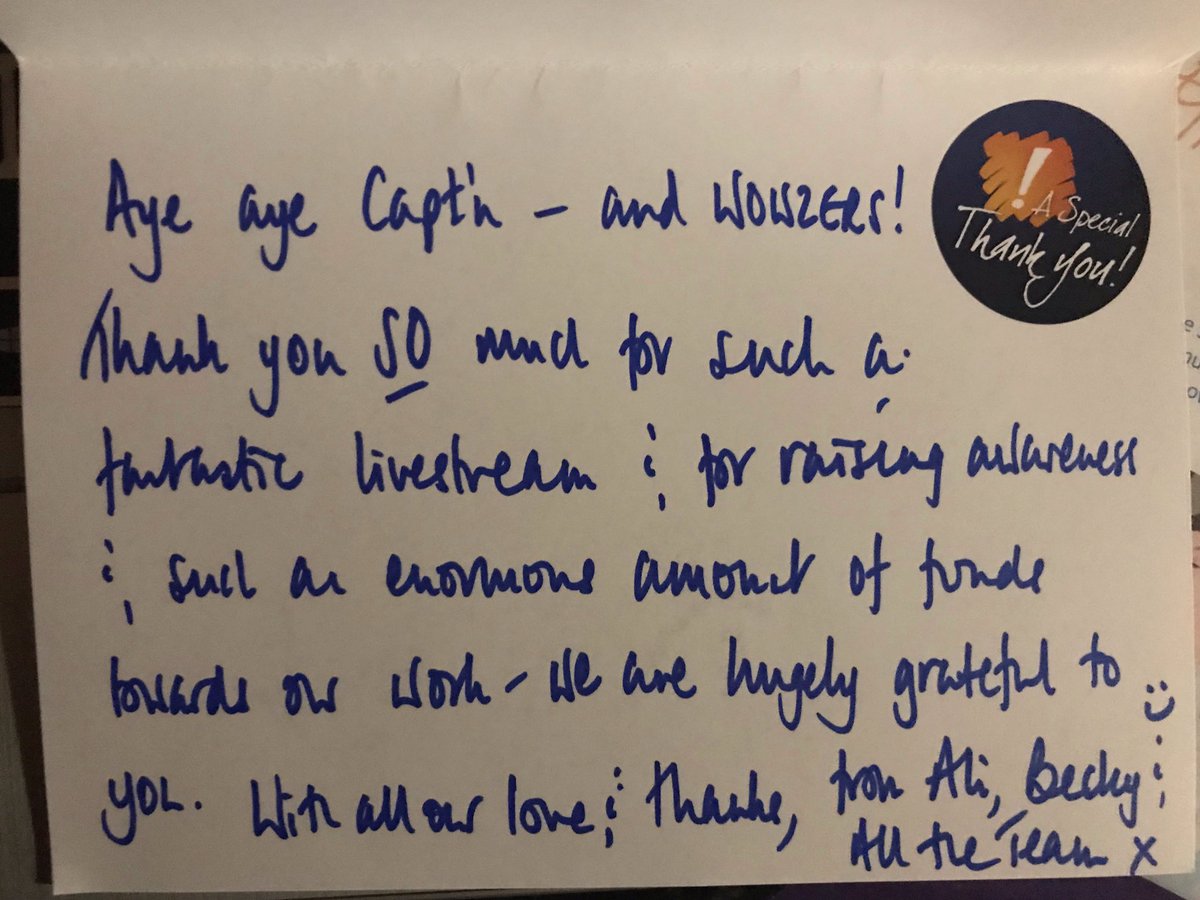 Aye aye Capt'n – and WOWZERS!
! A Special
Thank You!
Thank you SO much for such a
fantastic livestream & for raising awareness
& such an enormous amount of funds
towards our work – we are hugely grateful to
you. With all our love & thanks, from Ali, Becky &
All the Team x